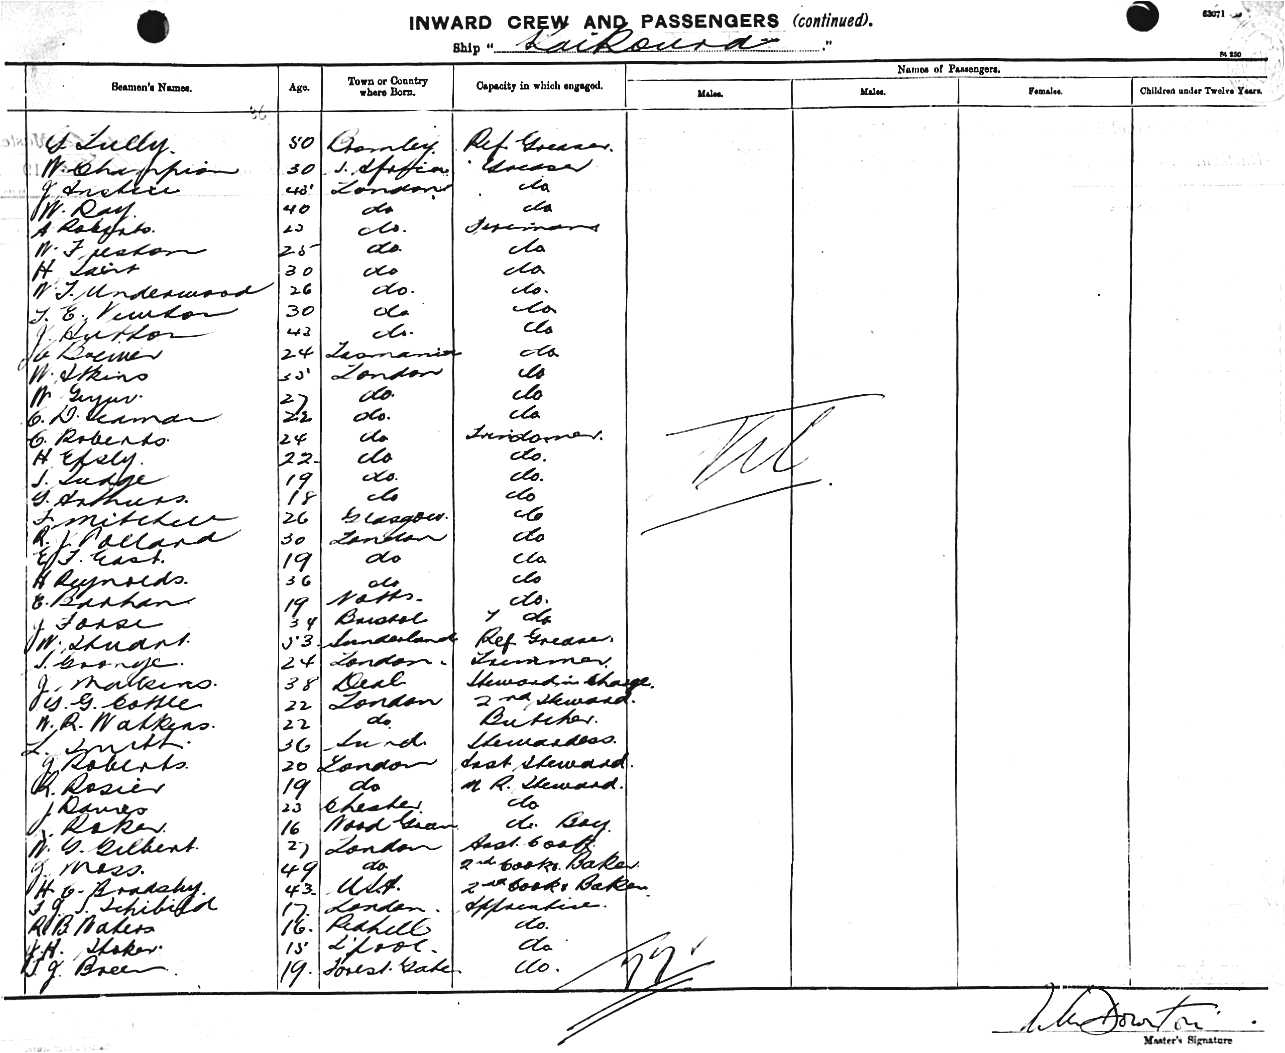 INWARD CREW AND PASSENGERS (continued).
63071
Ship "Kaikoura."
Seamen's Names. Age. Town or Country where Born. Capacity in which engaged. Names of Passengers.
Males. Males. Females. Children under Twelve Years.
36
Tully. 50 Bromley. Ref Greaser.
W. Champion 30 S. Africa Greaser
J. 45 London do
W. Ray. 40 do do
A Roberts. 23 do. Firemans
W. 25 do. do
H 30 do do
W. T. Underwood 26 do. do.
T. E. Newton 30 do do
J. Hutton 43 do. do
Bremer 24 Tasmania do
W. Atkins 35 London do
W 27 do. do
C. D. Seaman 22 do. do
C. Roberts. 24 do Trimmer.
H 22 do do.
J. Judge 19 do. do.
G. Arthurs. 18 do do
F. Mitchell 26 Glasgow. do
R. J. Pollard 30 London do
E. T. East. 19 do do
H Reynolds. 36 do do
E. Barham 19 Notts. do.
J Forse 34 Bristol do
W. Stuart. 53 Sunderland Ref Greaser.
S. George. 24 London. Trimmer.
J. Malkins. 38 Deal Steward in Charge.
G. G. Cottle 22 London 2nd Steward.
W. R. Watkins. 22 do Butcher.
L. Smith. 36 Sund. Stewardess.
J Roberts. 20 London Asst Steward.
R. Rosier 19 do M R. Steward.
J Davies 23 Chester. do
J. Roker. 16 Wood Green do. Boy.
W. G. Gilbert. 27 London Asst. Cook.
J. Moss. 49 do. 2nd Cook & Baker
H. C. Bradsby. 43 USA. 2nd Cook & Baker
F J. J. Schibild 17. London. Apprentice.
R B Waters 16. Redhill do.
J. H. Stoker. 15 L'pool. do
J. Breem. 19. Forest Gate do.
Nil
77
Master's Signature